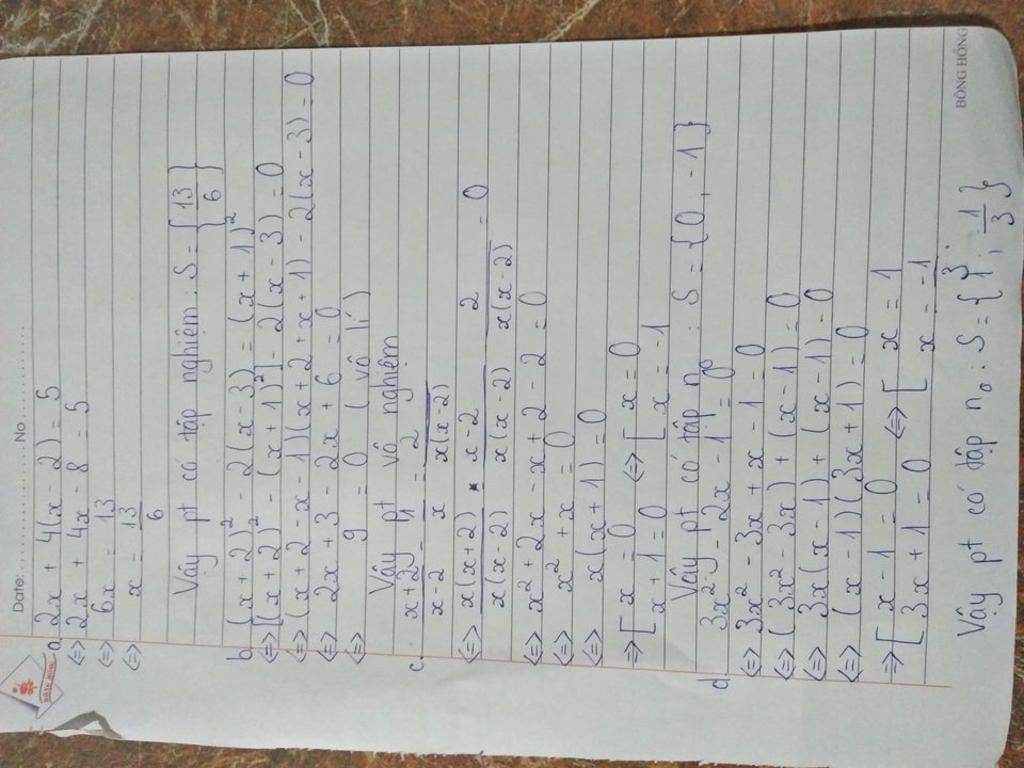 Date: ........................ No ........................
a. 2x + 4(x - 2) = 5
<=> 2x + 4x - 8 = 5
<=> 6x = 13
<=> x = 13/6
Vậy pt có tập nghiệm : S = { 13/6 }
b. (x + 2)² - 2(x - 3) = (x + 1)²
<=> [(x + 2)² - (x + 1)²] - 2(x - 3) = 0
<=> (x + 2 - x - 1)(x + 2 + x + 1) - 2(x - 3) = 0
<=> 2x + 3 - 2x + 6 = 0
<=> 9 = 0 (vô lí)
Vậy pt vô nghiệm
c. (x + 2)/(x - 2) - 1/x = 2/(x(x - 2))
<=> x(x + 2)/(x(x - 2)) - (x - 2)/(x(x - 2)) - 2/(x(x - 2)) = 0
<=> x² + 2x - x + 2 - 2 = 0
<=> x² + x = 0
<=> x(x + 1) = 0
=> [ x = 0 <=> [ x = 0
x + 1 = 0 x = -1
Vậy pt có tập n₀ : S = {0, -1}
d. 3x² - 2x - 1 = 0
<=> 3x² - 3x + x - 1 = 0
<=> (3x² - 3x) + (x - 1) = 0
<=> 3x(x - 1) + (x - 1) = 0
<=> (x - 1)(3x + 1) = 0
=> [ x - 1 = 0 <=> [ x = 1
3x + 1 = 0 x = -1/3
Vậy pt có tập n₀ : S = {1; -1/3}
BÔNG HỒNG